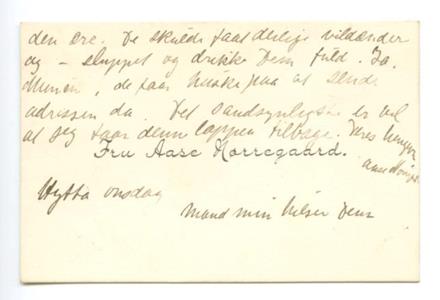 den ære. De skulde faat deilige vildænder
og – sluppet og drikke Dem fuld. Ja,
de faar huske paa at sende
adressen da. Det sandsynligste er vel
at jeg faar denne lappen tilbage. Deres
Fru Aase Nørregaard.
Hytta onsdag
Mand min hilser Dem